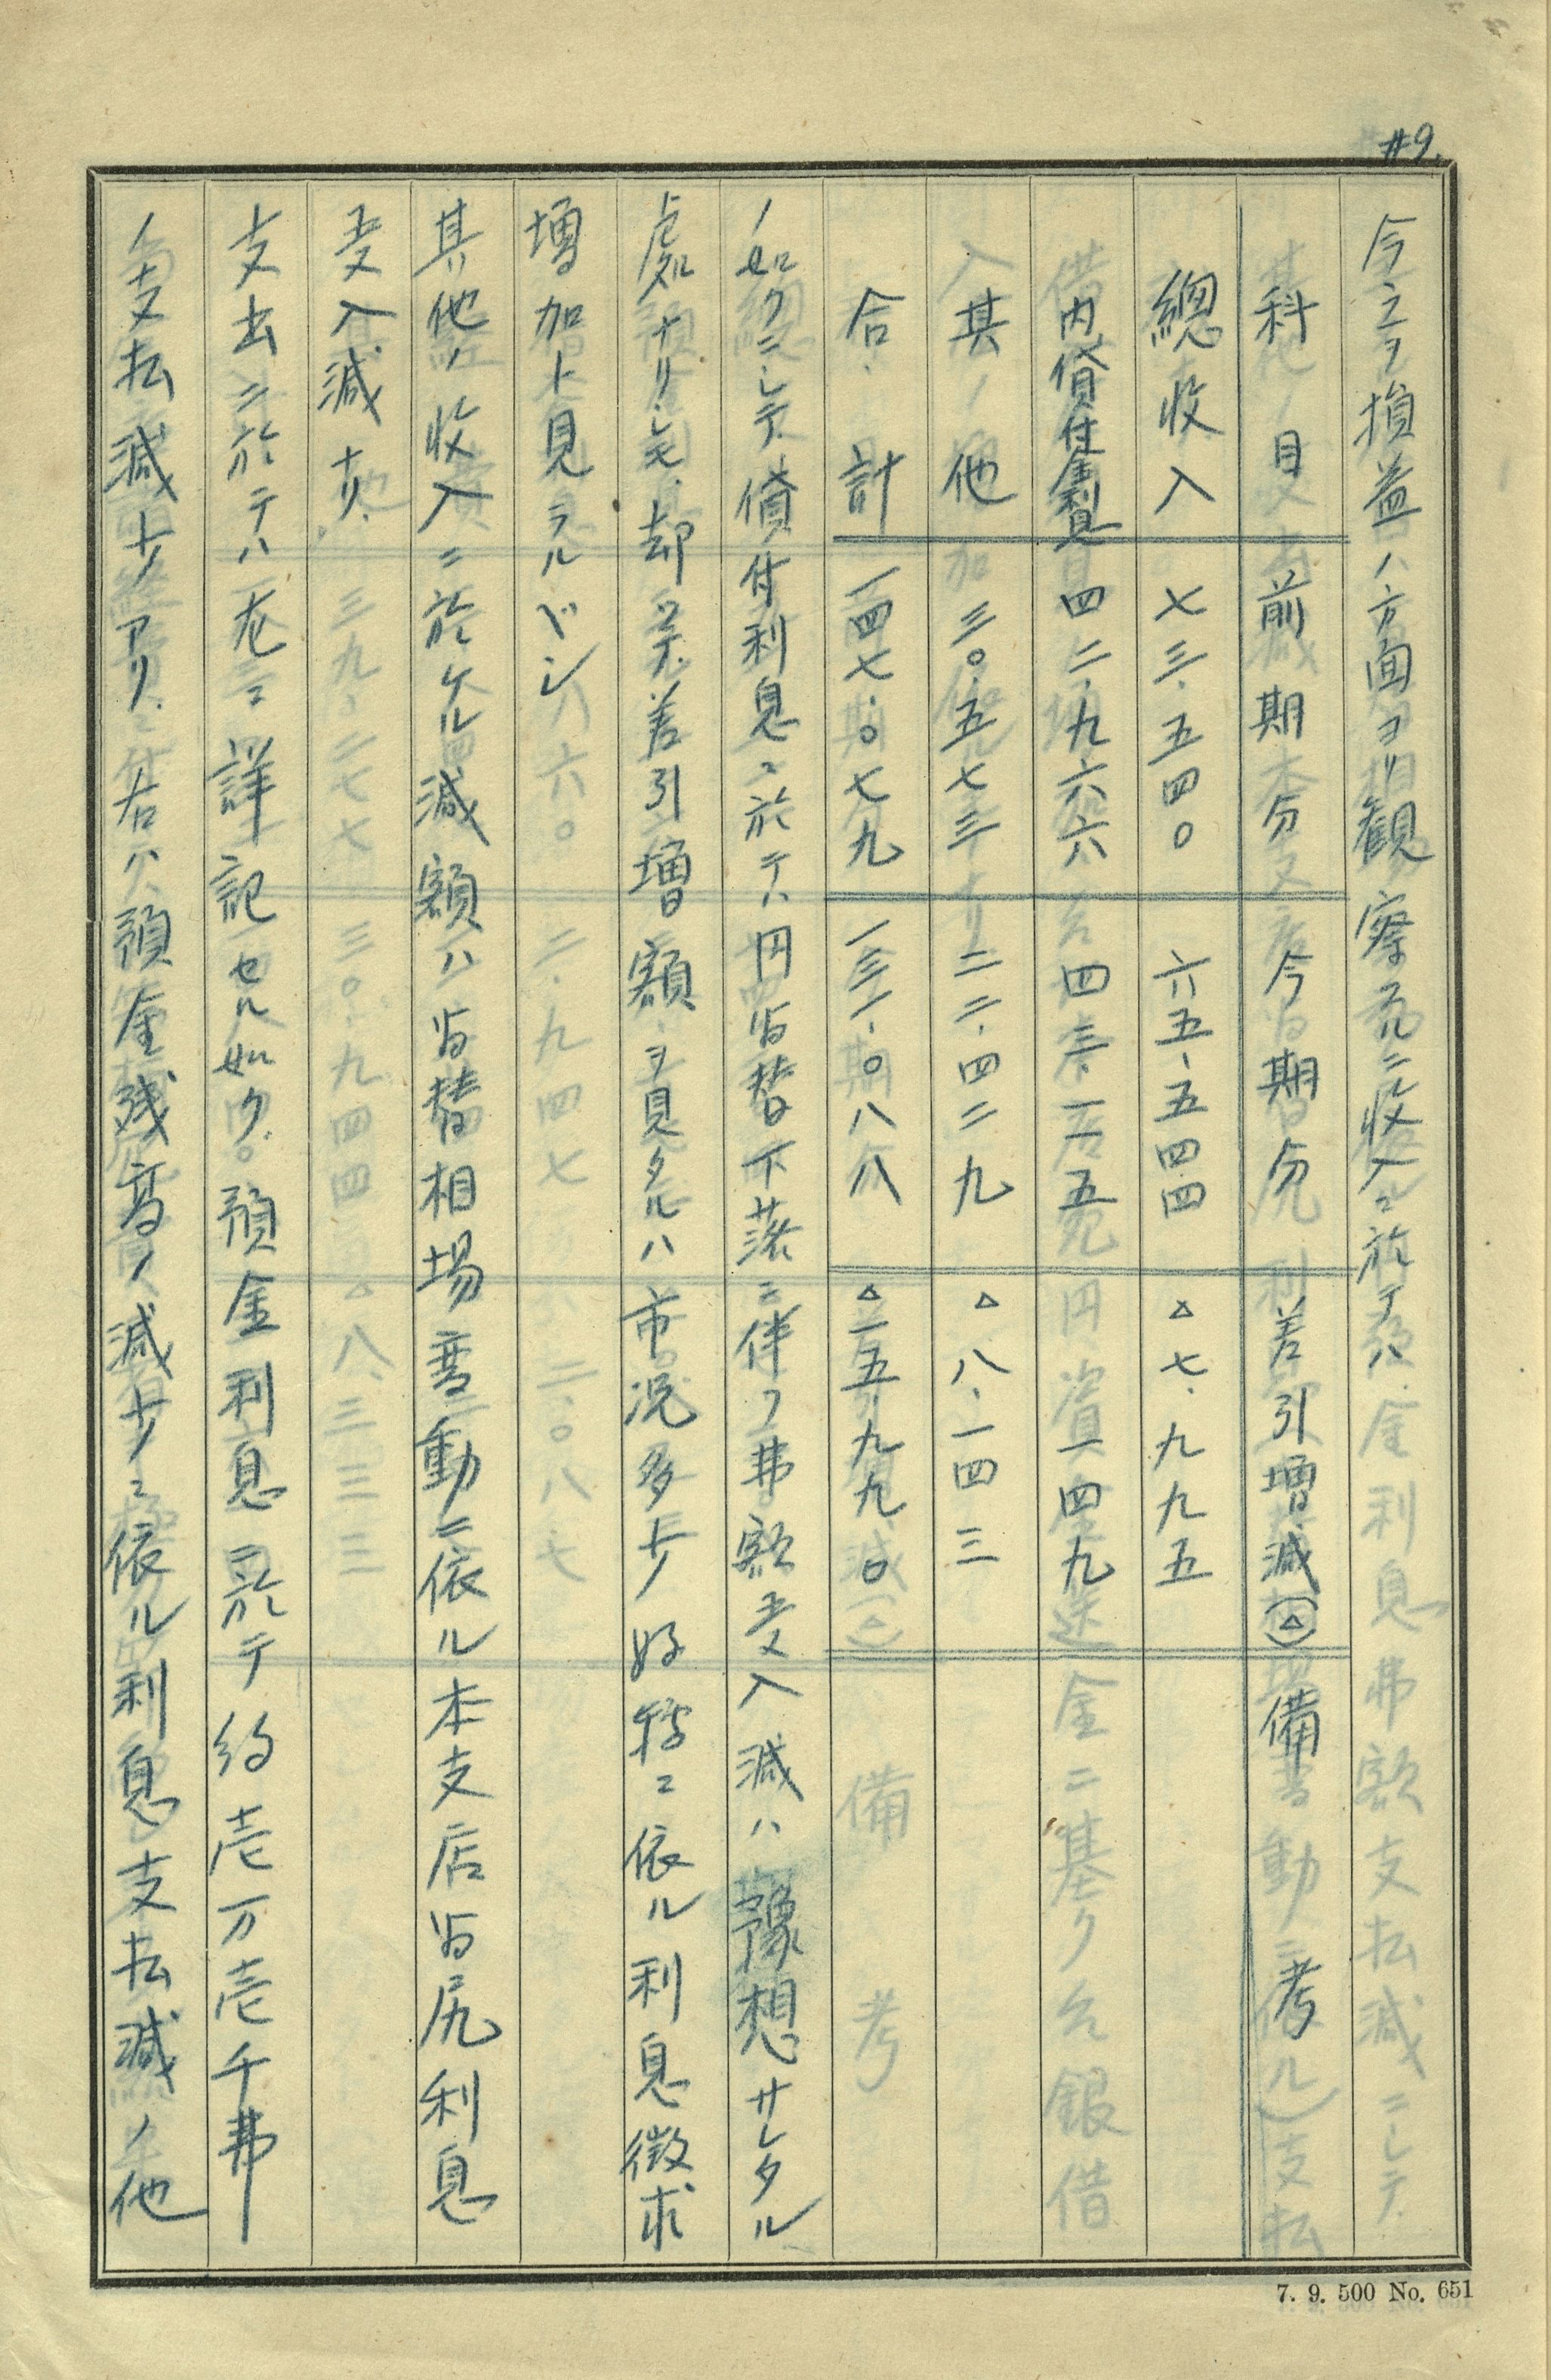 #9.
今之ヲ損益ノ方面ヨリ観察スルニ收入ニ於テハ
科目 前期分 今期分 差引増減(△) 備考
總收入 七三、五四〇 六五、五四四 △七、九九五
内貸付金利息 四二、九六六 四三、一一五 一四九
其ノ他 三〇、五七三 二二、四二九 △八、一四三
合計 一四七、〇七九 一三一、〇八八 △一五、九九〇
ノ如クニシテ貸付利息ニ於テハ円為替下落ニ伴フ弗額受入減ハ豫想サレタル
處ナリシモ、却ツテ、差引増額ヲ見タルハ市況多少好轉ニ依ル利息徴求
増加ト見ラルベシ
其他ノ收入ニ於ケル減額ハ為替相場変動ニ依ル本支店為尻利息
受入減ナリ
支出ニ於テハ左ニ詳記セル如ク。預金利息ニ於テ約壱万壱千弗
ノ支払減少アリ、右ハ預金残高ノ減少ニ依ル利息支払減ノ他
7. 9. 500 No. 651